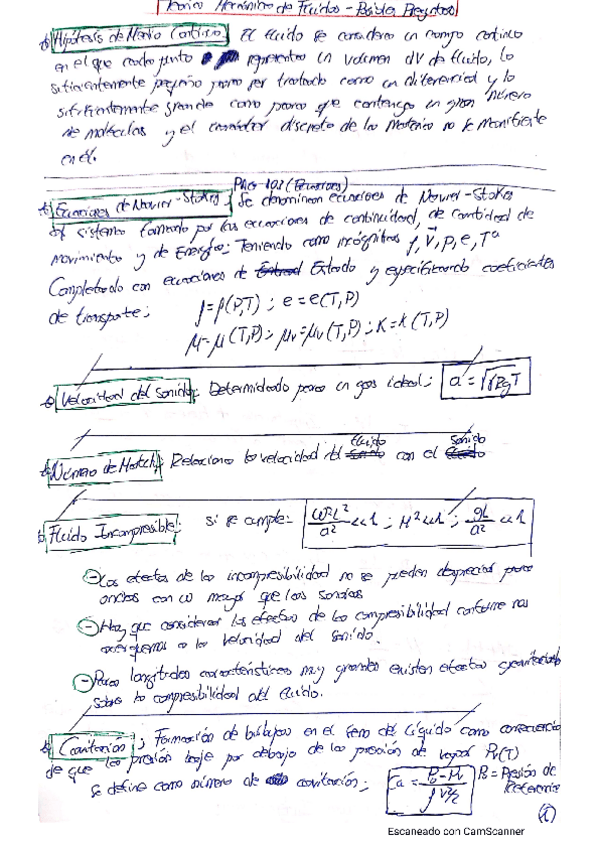 Teórico Mecánica de Fluidos - Posibles Preguntas
Hipótesis de Medio Continuo: El fluido se considera un campo continuo
en el que cada punto representa un volumen dV de fluido, lo
suficientemente pequeño para ser tratado como un diferencial y lo
suficientemente grande como para que contenga un gran número
de moléculas y el carácter discreto de la materia no se manifieste
en él.
PAG-102 (Ecuaciones)
Ecuaciones de Navier-Stokes: Se denominan ecuaciones de Navier-Stokes
al sistema formado por las ecuaciones de continuidad, de cantidad de
movimiento y de Energía. Teniendo como incógnitas ρ, v⃗, p, e, Tª
Completado con ecuaciones de Estado y especificando coeficientes
de transporte:
ρ=ρ(P,T) ; e=e(T,P)
μ=μ(T,P); μv=μv(T,P); K=K(T,P)
Velocidad del Sonido: Determinado para un gas ideal: a=√γRgT
Número de Match: Relaciona la velocidad del fluido con el sonido
Fluido Incompresible: si se cumple: ω²L²/a² <<1 ; M²<<1 ; gL/a² <<1
- Los efectos de la incompresibilidad no se pueden despreciar para
ondas con ω mayor que las sonidos
- Hay que considerar los efectos de la compresibilidad conforme nos
acerquemos a la velocidad del sonido.
- Para longitudes características muy grandes existen efectos gravitatorios
sobre la compresibilidad del fluido.
Cavitación: Formación de burbujas en el seno del líquido como consecuencia
de que la presión baje por debajo de la presión de vapor Pv(T)
Se define como número de cavitación: Ca = P0-Pv/ρV²/2 P0=Presión de
Referencia
(1)
Escaneado con CamScanner